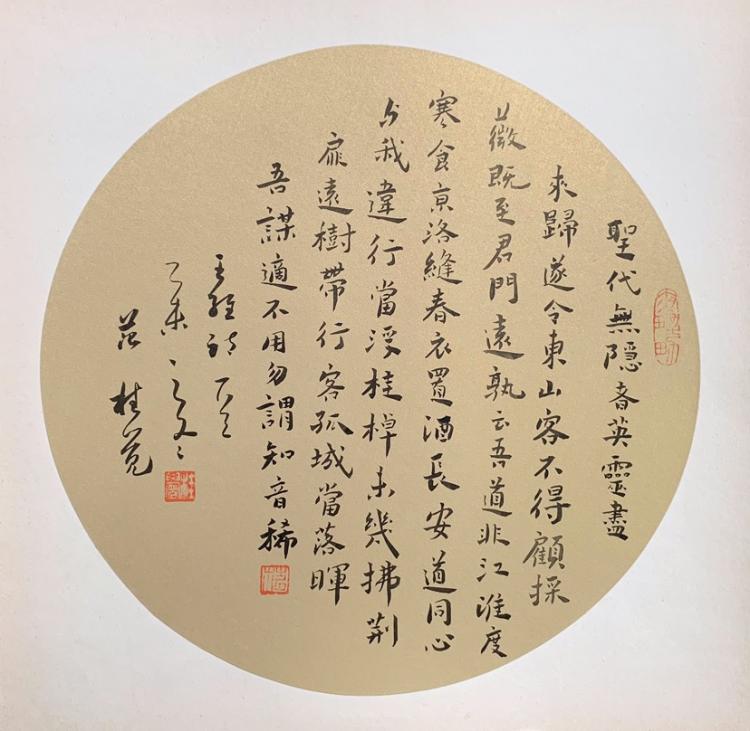 聖代無隐者英靈盡
來歸遂令東山客不得顧採
薇既至君門遠孰云吾道非江淮度
寒食京洛縫春衣置酒長安道同心
与我違行當浮桂棹未幾拂荆
扉遠樹帶行客孤城當落暉
吾謀適不用勿謂知音稀
王維詩
乙未之
范桂